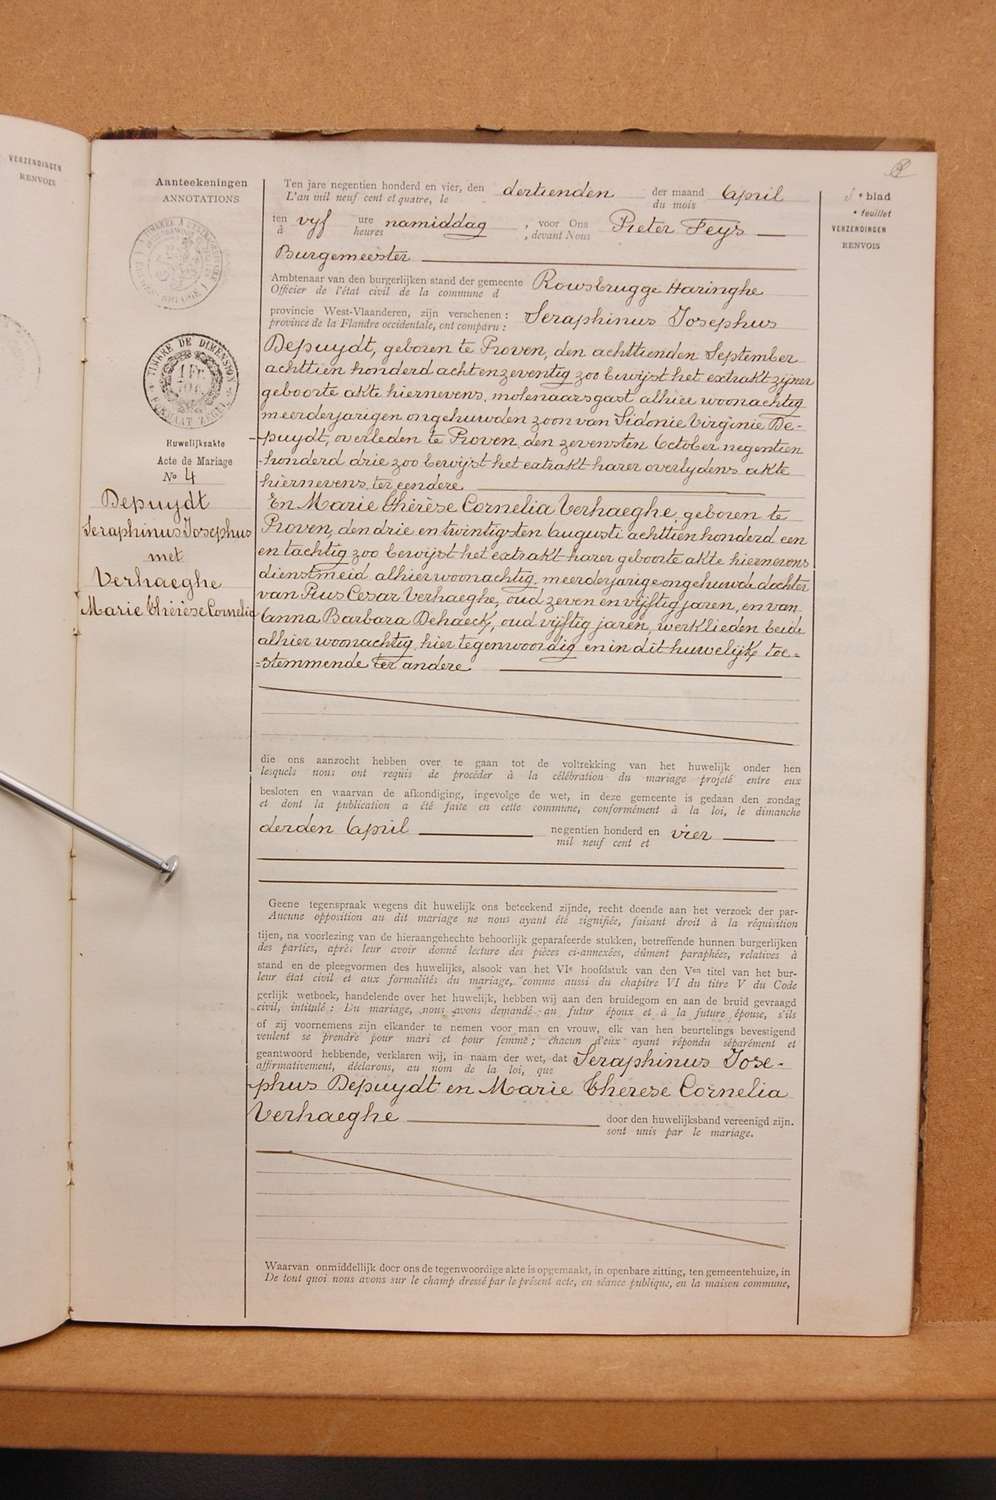 VERZENDINGEN
RENVOIS
Aanteekeningen
ANNOTATIONS
TIMBRE DE DIMENSION
1 FR
Huwelijksakte
Acte de Mariage
No 4
Depuydt
Seraphinus Josephus
met
Verhaeghe
Marie Thérèse Cornelia
Ten jare negentien honderd en vier, den dertienden der maand April
L'an mil neuf cent et quatre, le du mois
ten vijf ure namiddag, voor Ons Pieter Feys
à heures , devant Nous
Burgemeester
Ambtenaar van den burgerlijken stand der gemeente Rousbrugge Haringhe
Officier de l'état civil de la commune d
provincie West-Vlaanderen, zijn verschenen : Seraphinus Josephus
province de la Flandre occidentale, ont comparu :
Depuydt, geboren te Proven, den achttienden September
achttien honderd achtenzeventig zoo bewijst het extrakt zijner
geboorte akte hiernevens, molenaarsgast alhier woonachtig
meerderjarigen ongehuwden zoon van Sidonie Virginie De-
-puydt, overleden te Proven den zevensten October negentien
-honderd drie zoo bewijst het extrakt harer overlydens akte
hiernevens, ter eendere
En Marie Thérèse Cornelia Verhaeghe geboren te
Proven, den drie en twintigsten Augusti achttien honderd een
en tachtig zoo bewijst het extrakt harer geboorte akte hiernevens
dienstmeid alhier woonachtig, meerderjarige ongehuwde dochter
van Pius Cesar Verhaeghe, oud zeven en vijftig jaren, en van
Anna Barbara Dehaeck, oud vijftig jaren, werklieden beide
alhier woonachtig, hier tegenwoordig en in dit huwelijk toe=
=stemmende ter andere
die ons aanzocht hebben over te gaan tot de voltrekking van het huwelijk onder hen
lesquels nous ont requis de procéder à la célébration du mariage projeté entre eux
besloten en waarvan de afkondiging, ingevolge de wet, in deze gemeente is gedaan den zondag
et dont la publication a été faite en cette commune, conformément à la loi, le dimanche
derden April negentien honderd en vier
mil neuf cent et
Geene tegenspraak wegens dit huwelijk ons beteekend zijnde, recht doende aan het verzoek der par-
Aucune opposition au dit mariage ne nous ayant été signifiée, faisant droit à la réquisition
tijen, na voorlezing van de hieraangehechte behoorlijk geparafeerde stukken, betreffende hunnen burgerlijken
des parties, après leur avoir donné lecture des pièces ci-annexées, dûment paraphées, relatives à
stand en de pleegvormen des huwelijks, alsook van het VIe hoofdstuk van den Ven titel van het bur-
leur état civil et aux formalités du mariage, comme aussi du chapitre VI du titre V du Code
gerlijk wetboek, handelende over het huwelijk, hebben wij aan den bruidegom en aan de bruid gevraagd
civil, intitulé : Du mariage, nous avons demandé au futur époux et à la future épouse, s'ils
of zij voornemens zijn elkander te nemen voor man en vrouw, elk van hen beurtelings bevestigend
veulent se prendre pour mari et pour femme ; chacun d'eux ayant répondu séparément et
geantwoord hebbende, verklaren wij, in naam der wet, dat Seraphinus Jose-
affirmativement, déclarons, au nom de la loi, que
-phus Depuydt en Marie Thérèse Cornelia
Verhaeghe door den huwelijksband vereenigd zijn.
sont unis par le mariage.
Waarvan onmiddellijk door ons de tegenwoordige akte is opgemaakt, in openbare zitting, ten gemeentehuize, in
De tout quoi nous avons sur le champ dressé par le présent acte, en séance publique, en la maison commune,
e blad
e feuillet
VERZENDINGEN
RENVOIS